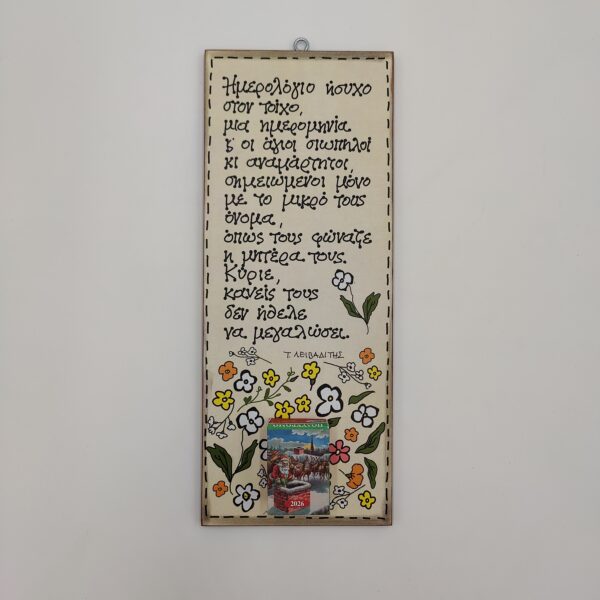 Ημερολόγιο ήσυχο
στον τοίχο,
μια ημερομηνία
κ' οι άγιοι σιωπηλοί
κι αναμάρτητοι,
σημειωμένοι μόνο
με το μικρό τους
όνομα,
όπως τους φώναζε
η μητέρα τους.
Κύριε,
κανείς τους
δεν ήθελε
να μεγαλώσει.
Τ. ΛΕΙΒΑΔΙΤΗΣ
2026